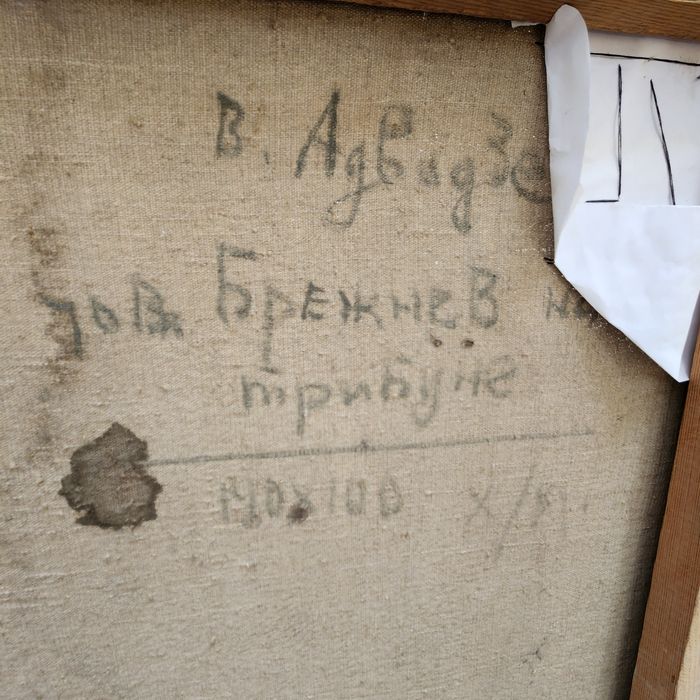 В. Адвадзе
тов. Брежнев на
трибуне
140х100 х/м.